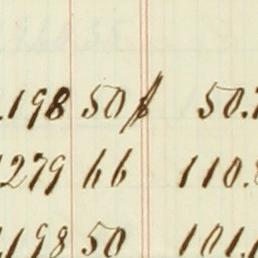 198 50 50.
279 66 110.
198 50 101.